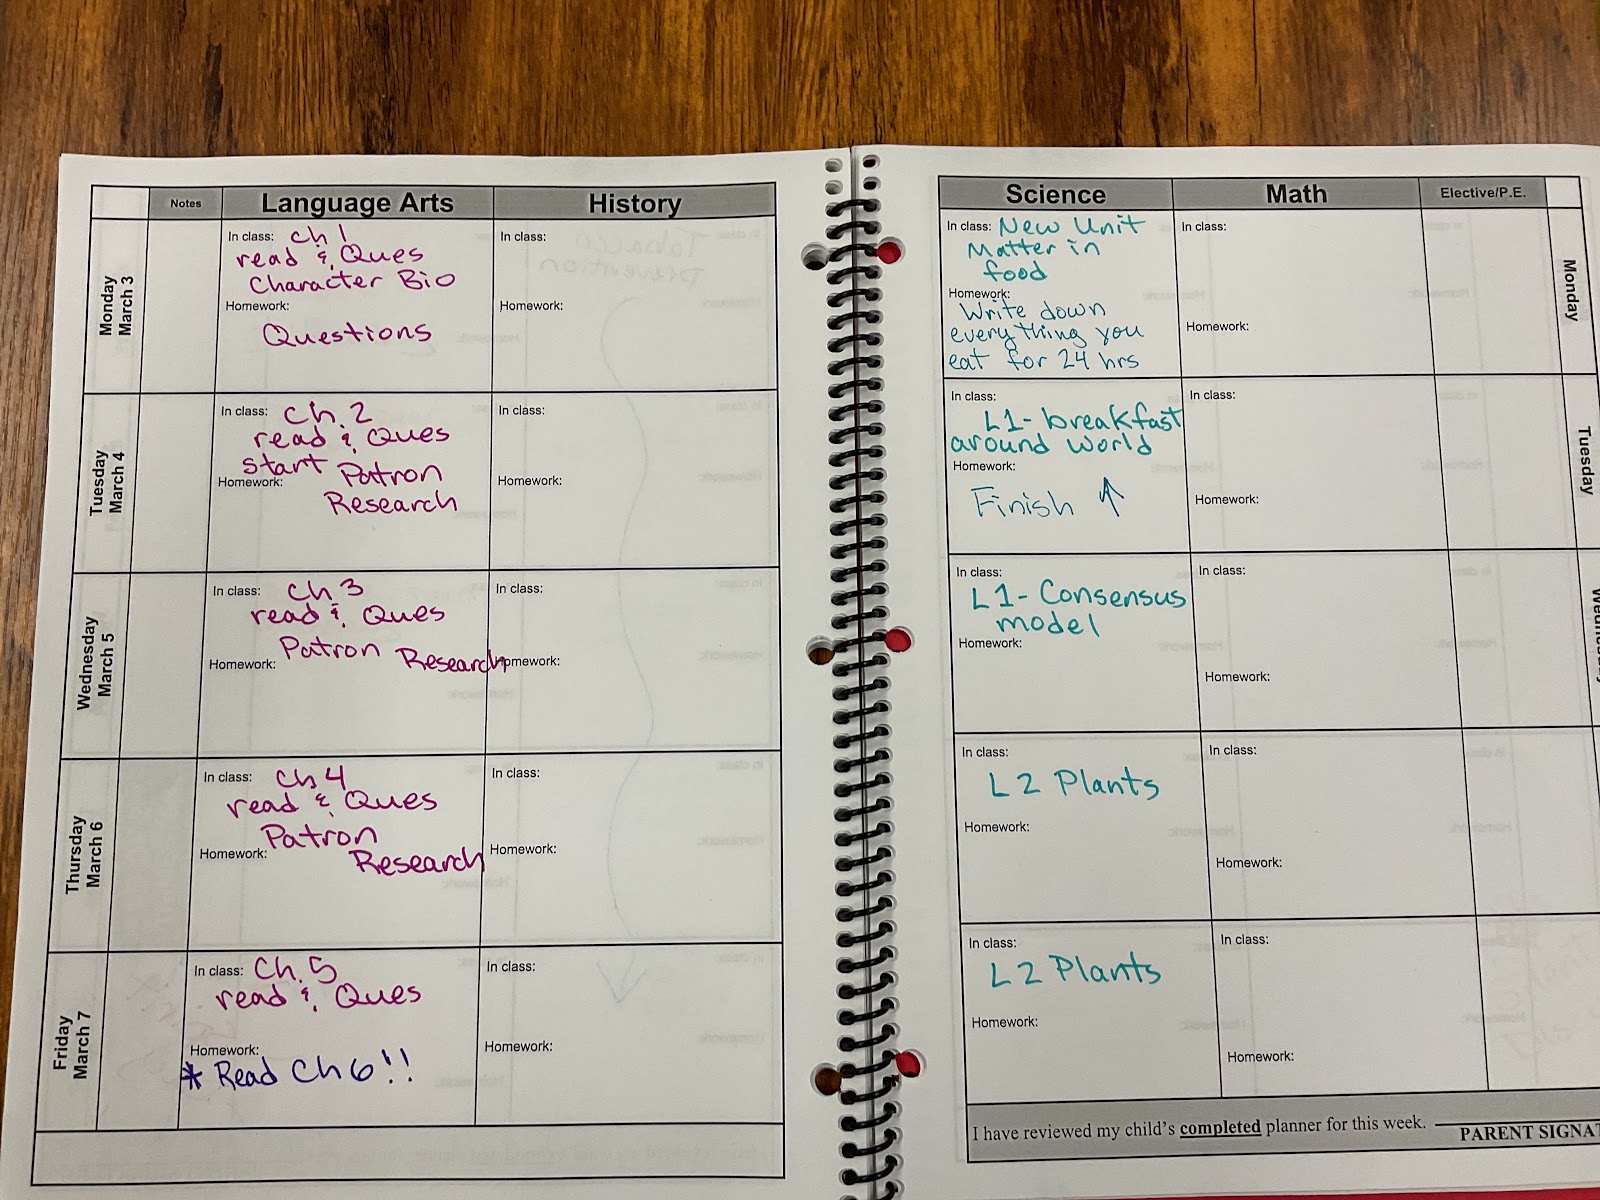 Notes
Language Arts
History
Science
Math
Elective/P.E.
Monday
March 3
In class: Ch 1
read & Ques
Character Bio
Homework:
Questions
In class:
Homework:
In class: New Unit
Matter in
food
Homework:
Write down
everything you
eat for 24 hrs
In class:
Homework:
Monday
Tuesday
March 4
In class: Ch. 2
read & Ques
start Patron
Homework:
Research
In class:
Homework:
In class:
L1- breakfast
around world
Homework:
Finish ↑
In class:
Homework:
Tuesday
Wednesday
March 5
In class: Ch 3
read & Ques
Patron Research
Homework:
In class:
Homework:
In class:
L1- Consensus
model
Homework:
In class:
Homework:
Thursday
March 6
In class: Ch 4
read & Ques
Patron
Homework:
Research
In class:
Homework:
In class:
L2 Plants
Homework:
In class:
Homework:
Friday
March 7
In class: Ch. 5
read & Ques
Homework:
* Read Ch 6!!
In class:
Homework:
In class:
L2 Plants
Homework:
In class:
Homework:
I have reviewed my child's completed planner for this week.
PARENT SIGNA